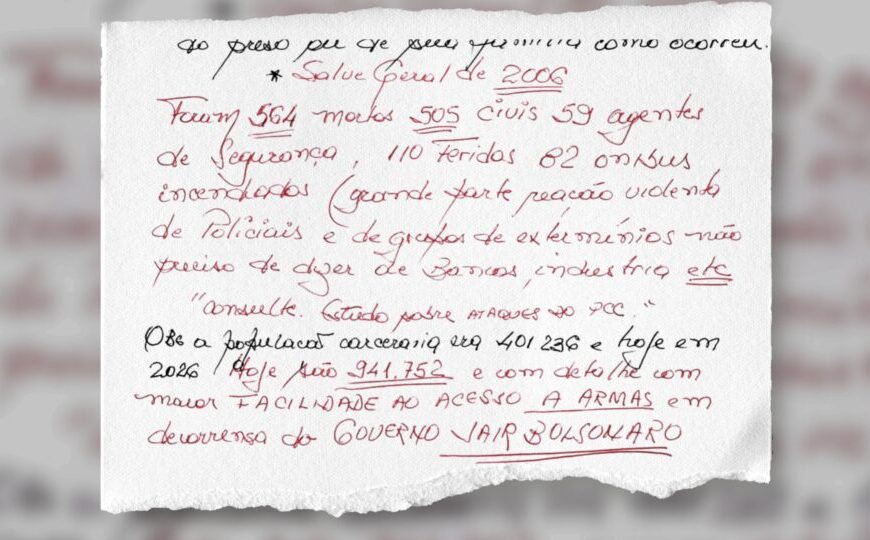 do preso ou de sua familia como ocorreu.
* Salve Geral de 2006
Foram 564 mortos 505 civis 59 agentes
de Segurança, 110 feridos 82 onibus
incendiados (grande parte reação violenta
de Policiais e de grupos de extermínios não
preciso de dizer de Bancos, industria etc
"consulte. Estudo sobre ATAQUES DO PCC."
Obs a população carceraria era 401 236 e hoje em
2026 / Hoje são 941,752 e com detalhe com
maior FACILIDADE AO ACESSO A ARMAS em
decorrensa do GOVERNO JAIR BOLSONARO